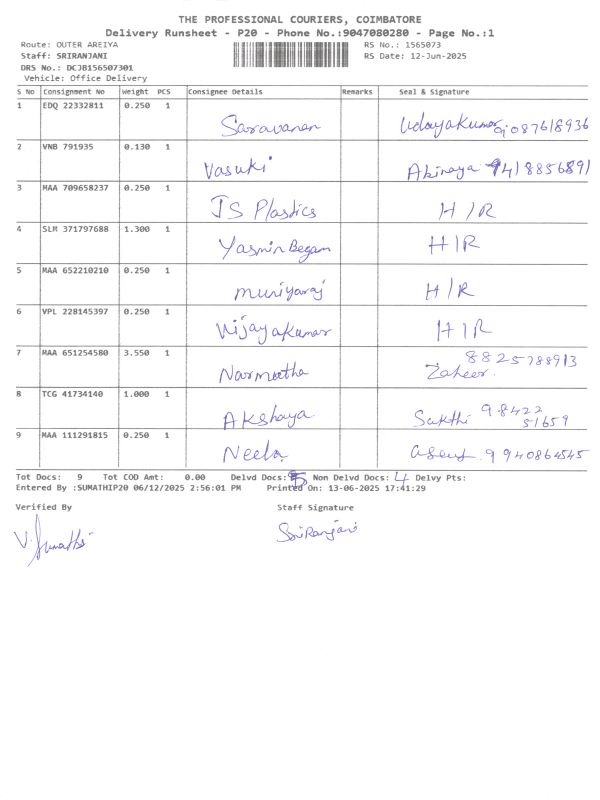 THE PROFESSIONAL COURIERS, COIMBATORE
Delivery Runsheet - P20 - Phone No.:9047080280 - Page No.:1
Route: OUTER AREIYA RS No.: 1565073
Staff: SRIRANJANI RS Date: 12-Jun-2025
DRS No.: DCJB156507301
Vehicle: Office Delivery
S No Consignment No Weight PCS Consignee Details Remarks Seal & Signature
1 EDQ 22332811 0.250 1 Saravanan Udayakumar 9087618936
2 VNB 791935 0.130 1 Vasuki Abinaya 9418856891
3 MAA 709658237 0.250 1 JS Plastics H/R
4 SLM 371797688 1.300 1 Yasmin Begam H/R
5 MAA 652210210 0.250 1 Muniyaraj H/R
6 VPL 228145397 0.250 1 Vijayakumar H/R
7 MAA 651254580 3.550 1 Narmatha 8825788913
Zaheer.
8 TCG 41734140 1.000 1 Akshaya Sakthi 98422
51659
9 MAA 111291815 0.250 1 Neela 9940864545
Tot Docs: 9 Tot COD Amt: 0.00 Delvd Docs: 5 Non Delvd Docs: 4 Delvy Pts:
Entered By :SUMATHIP20 06/12/2025 2:56:01 PM Printed On: 13-06-2025 17:41:29
Verified By Staff Signature
V. Sumathi Sriranjani